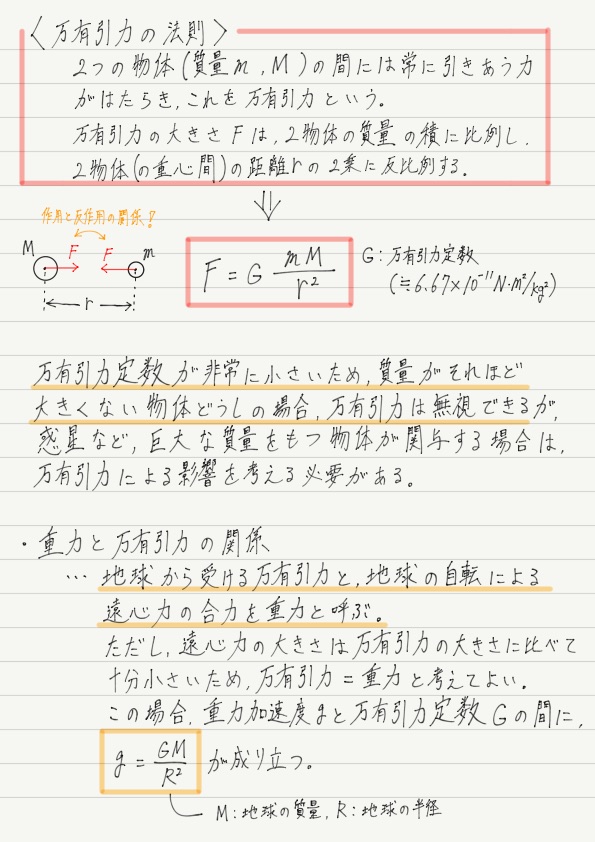 〈万有引力の法則〉
2つの物体(質量m, M)の間には常に引きあう力
がはたらき, これを万有引力という。
万有引力の大きさFは, 2物体の質量の積に比例し,
2物体(の重心間)の距離rの2乗に反比例する.
作用と反作用の関係!
M F F m
r
F = G mM/r²
G: 万有引力定数
(≒6.67×10⁻¹¹N·m²/kg²)
万有引力定数が非常に小さいため, 質量がそれほど
大きくない物体どうしの場合, 万有引力は無視できるが,
惑星など, 巨大な質量をもつ物体が関与する場合は,
万有引力による影響を考える必要がある。
・重力と万有引力の関係
… 地球から受ける万有引力と, 地球の自転による
遠心力の合力を重力と呼ぶ。
ただし, 遠心力の大きさは万有引力の大きさに比べて
十分小さいため, 万有引力=重力と考えてよい.
この場合, 重力加速度gと万有引力定数Gの間に,
g = GM/R² が成り立つ。
M: 地球の質量, R: 地球の半径